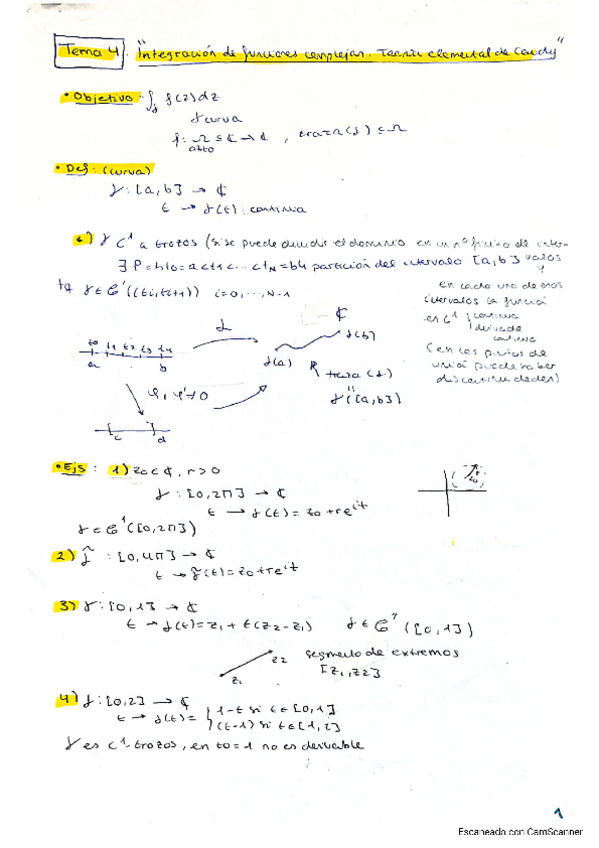 Tema 4. "Integración de funciones complejas. Teoría elemental de Cauchy"
• Objetivo: ∫γ f(z)dz
γ curva
f: Ω ⊆ ℂ → ℂ , traza(γ) ⊆ Ω
abto
• Def: (curva)
γ: [a,b] → ℂ
t → γ(t) continua
γ C¹ a trozos (si se puede dividir el dominio en un nº finito de intervalos y
∃ P = {t0 = a < t1 < ... < tN = b} partición del intervalo [a,b]
tq γ ∈ C¹((ti, ti+1)) i=0,...,N-1
en cada uno de esos
intervalos la función
es C¹ { continua
derivada
continua
(en los puntos de
unión puede haber
discontinuidades)
t0 t1 t2 t3 t4
a b
γ
ℂ
γ(a)
γ(b)
traza(γ)
"
γ([a,b])
φ, φ'≠0
c d
• Ejs: 1) z0 ∈ ℂ, r > 0
γ: [0, 2π] → ℂ
t → γ(t) = z0 + re^it
γ ∈ C¹([0, 2π])
2) γ̃ : [0, 4π] → ℂ
t → γ̃(t) = z0 + re^it
3) γ: [0, 1] → ℂ
t → γ(t) = z1 + t(z2 - z1) γ ∈ C¹([0, 1])
z1
z2
segmento de extremos
[z1, z2]
4) γ: [0, 2] → ℂ
t → γ(t) = { 1-t si t ∈ [0, 1]
(t-1) si t ∈ [1, 2]
γ es C¹-trozos, en t0 = 1 no es derivable
1
Escaneado con CamScanner